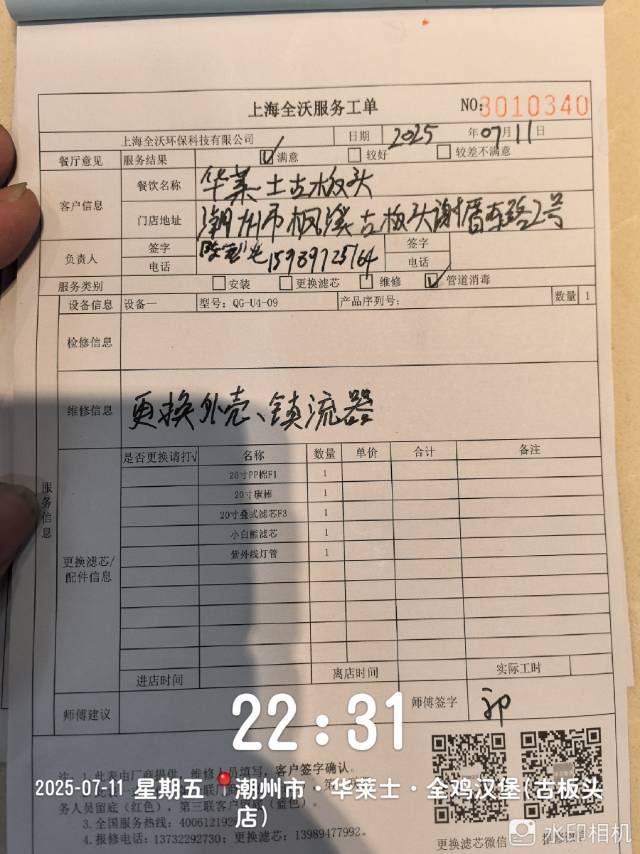 上海全沃服务工单 NO: 3010340
上海全沃环保科技有限公司 日期 2025 年 07 月 11 日
餐厅意见 服务结果 ☑满意 □较好 □较差不满意
客户信息 餐饮名称 华莱士古板头
门店地址 潮州市枫溪古板头谢厝东路2号
负责人 签字 签字
电话 15989725764 电话
服务类别 □安装 □更换滤芯 □维修 ☑管道消毒
设备信息 设备一 型号: QG-U4-09 产品序列号: 数量 1
检修信息
维修信息 更换外壳、镇流器
服务信息
是否更换请打√ 名称 数量 单价 合计 备注
20寸PP棉F1 1
20寸碳棒 1
20寸叠式滤芯F3 1
小白熊滤芯 1
紫外线灯管 1
更换滤芯/配件信息
进店时间 离店时间 实际工时
师傅建议 师傅签字 郭
22:31
注: 1.此表由厂商提供，维修人员填写，客户签字确认。
2025-07-11 星期五 潮州市·华莱士·全鸡汉堡(古板头店)
务人员留底（红色），第三联客户留底（蓝色）。
3.全国服务热线: 4006121928
4.报修电话: 13732292730; 更换滤芯: 13989477992.
更换滤芯微信
水印相机